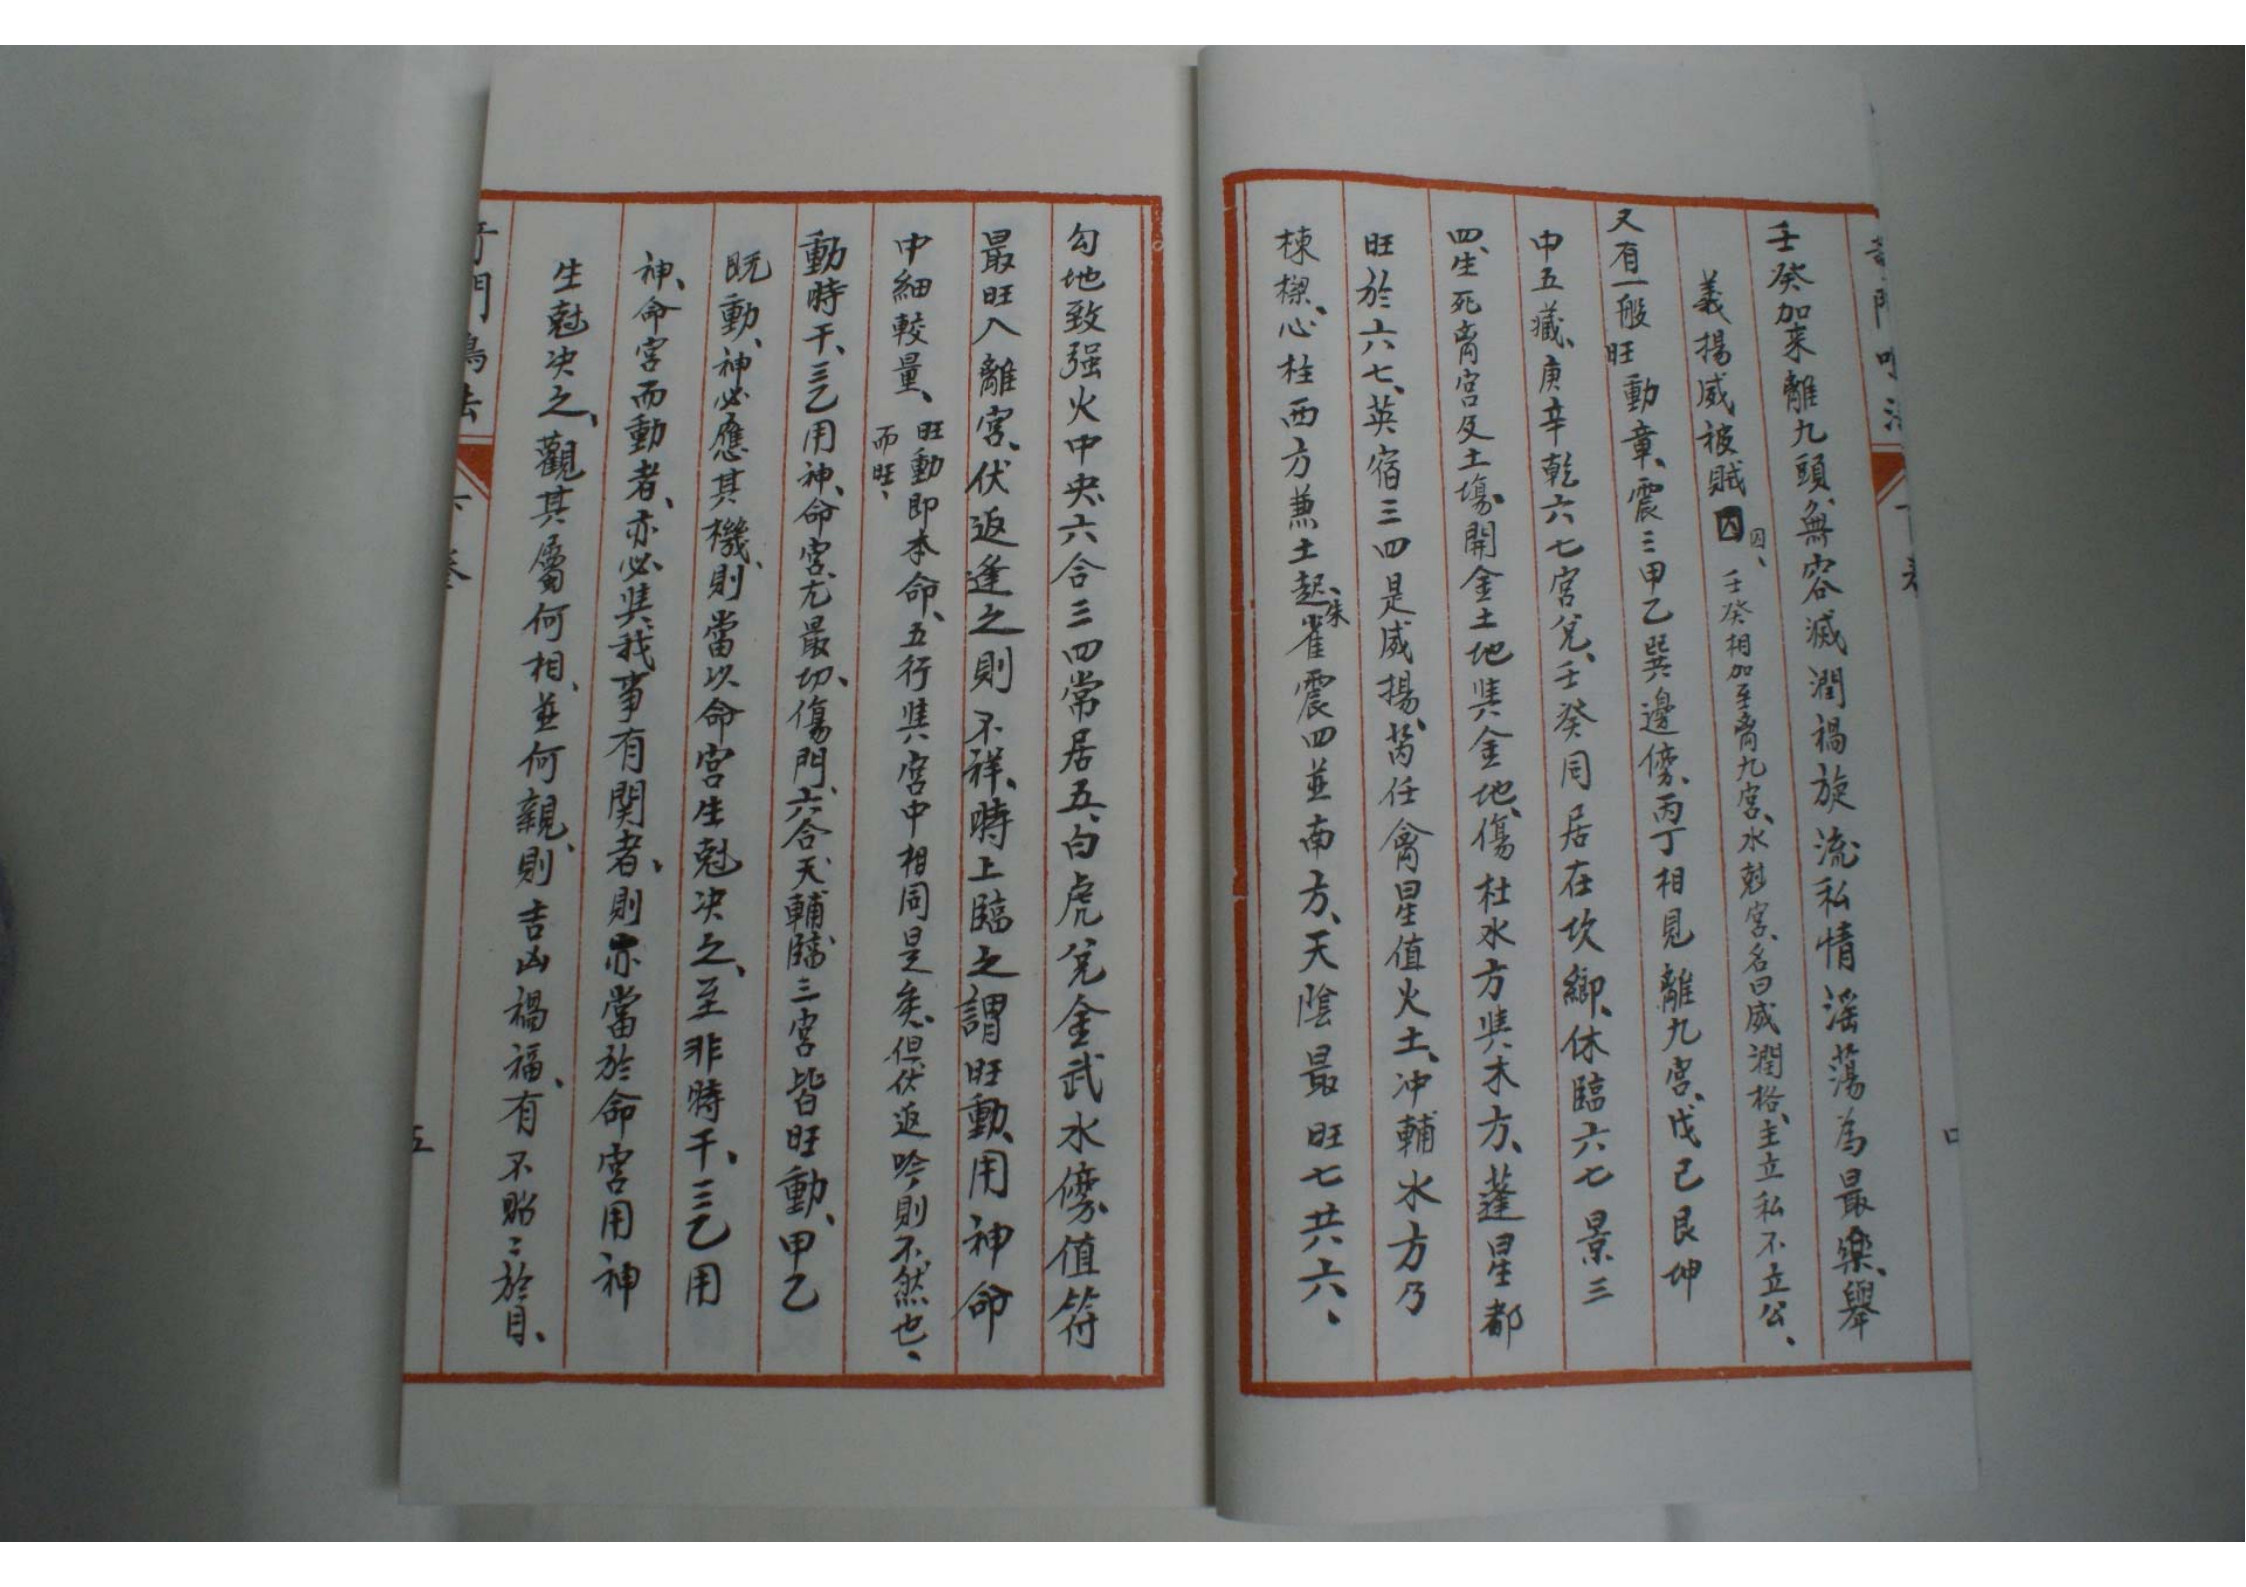 壬癸加來離九頭、無容滅潤禍旋流私情淫蕩為最樂、舉
義揚威被賊囚
囚、
壬癸相加至离九宮、水尅宮、名曰威潤格、主立私不立公、
又有一般旺動章、震三甲乙巽邊傍、丙丁相見離九宮、戊己艮坤
中五藏、庚辛乾六七宮兌、壬癸同居在坎鄉、休臨六七景三
四、生死离宮及土塲、開金土地與金地、傷杜水方與木方、蓬星都
旺於六七、英宿三四是威揚、芮任禽星值火土、冲輔水方乃
棟樑、心柱西方兼土起、朱雀震四並南方、天陰最旺七共六、
勾地致强火中央、六合三四常居五、白虎兌金武水傍值符
最旺入離宮、伏返逢之則不祥、時上臨之謂旺動、用神命
中細較量、
旺動即本命、五行與宮中相同是矣、但伏返吟、則不然也、
而旺、
動時干、三乙用神、命宮、尤最切、傷門、六合天輔臨三宮皆旺動、甲乙
既動、神必應其機、則當以命宮生尅决之、至非時干、三乙用
神、命宮而動者、亦必與我事有関者、則亦當於命宮用神
生尅决之、觀其屬何相、並何親、則吉凶禍福、有不昭〻於目、
五